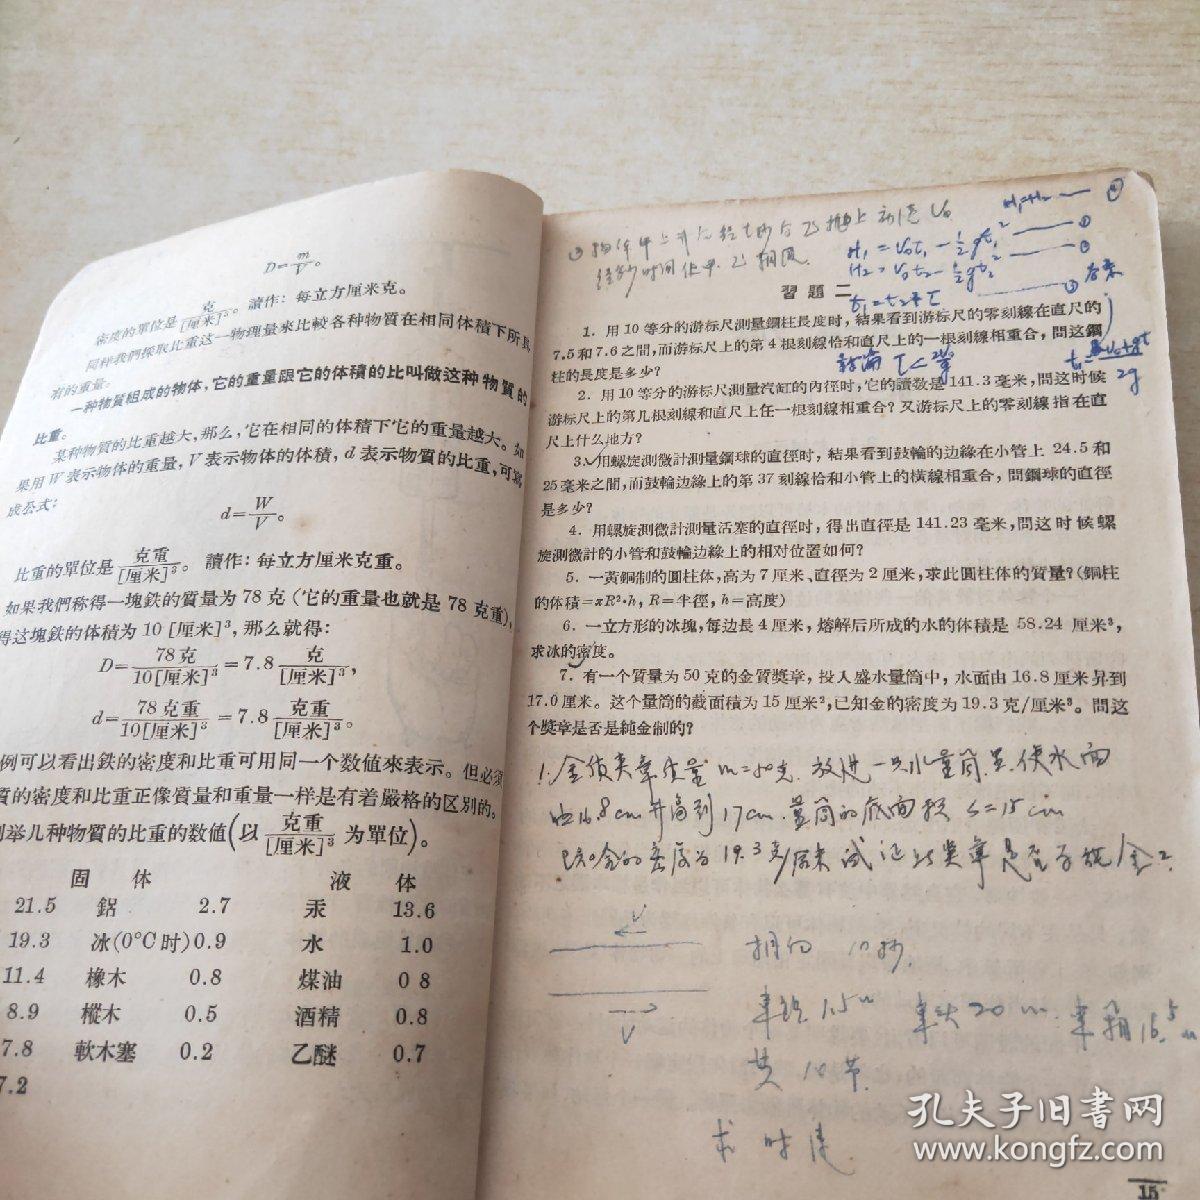 D=m/V。
密度的單位是 克/[厘米]³。 讀作：每立方厘米克。
同样我們採取比重这一物理量來比較各种物質在相同体積下所具
有的重量。
一种物質組成的物体，它的重量跟它的体積的比叫做这种物質的
比重。
某种物質的比重越大，那么，它在相同的体積下它的重量越大。如
果用W表示物体的重量，V表示物体的体積，d表示物質的比重，可寫
成公式：
d=W/V。
比重的單位是 克重/[厘米]³。 讀作：每立方厘米克重。
如果我們称得一塊鉄的質量为 78 克（它的重量也就是 78 克重），
得这塊鉄的体積为 10 [厘米]³，那么就得：
D=78克/10[厘米]³=7.8 克/[厘米]³，
d=78克重/10[厘米]³=7.8 克重/[厘米]³。
例可以看出鉄的密度和比重可用同一个数値來表示。但必須
質的密度和比重正像質量和重量一样是有着嚴格的区別的。
列举几种物質的比重的数値（以 克重/[厘米]³ 为單位）。
固 体 液 体
21.5 鋁 2.7 汞 13.6
19.3 冰(0°C时)0.9 水 1.0
11.4 橡木 0.8 煤油 0 8
8.9 樅木 0.5 酒精 0.8
7.8 軟木塞 0.2 乙醚 0.7
7.2
H₁=V₀t₁-½gt₁²
H₂=V₀t₂-½gt₂²
習題二
1. 用 10 等分的游标尺測量鋼柱長度时，結果看到游标尺的零刻線在直尺的
7.5和7.6之間，而游标尺上的第4根刻線恰和直尺上的一根刻線相重合，問这鋼
柱的長度是多少？
2. 用10等分的游标尺測量汽缸的內徑时，它的讀数是141.3毫米，問这时候
游标尺上的第几根刻線和直尺上任一根刻線相重合？又游标尺上的零刻線指在直
尺上什么地方？
3. 用螺旋測微計測量鋼球的直徑时，結果看到鼓輪的边緣在小管上 24.5 和
25毫米之間，而鼓輪边緣上的第37刻線恰和小管上的橫線相重合，問鋼球的直徑
是多少？
4. 用螺旋測微計測量活塞的直徑时，得出直徑是 141.23 毫米，問这时候螺
旋測微計的小管和鼓輪边緣上的相对位置如何？
5. 一黃銅制的圓柱体，高为7厘米、直徑为2厘米，求此圓柱体的質量？（銅柱
的体積=πR²·h，R=半徑，h=高度）
6. 一立方形的冰塊，每边長4厘米，熔解后所成的水的体積是 58.24 厘米³，
求冰的密度。
7. 有一个質量为50克的金質獎章，投入盛水量筒中，水面由16.8厘米昇到
17.0厘米。这个量筒的截面積为15厘米²，已知金的密度为19.3克/厘米³。問这
个獎章是否是純金制的？
1. 金质奖章质量 m=50克. 放进一只量筒里, 使水面
由16.8cm升高到17cm. 量筒的底面积 S=15cm
已知金的密度为19.3克/厘米 试证此奖章是否为纯金?
V
相向 10秒.
V
共 10节.
求 时速
15
孔夫子旧書网
www.kongfz.com